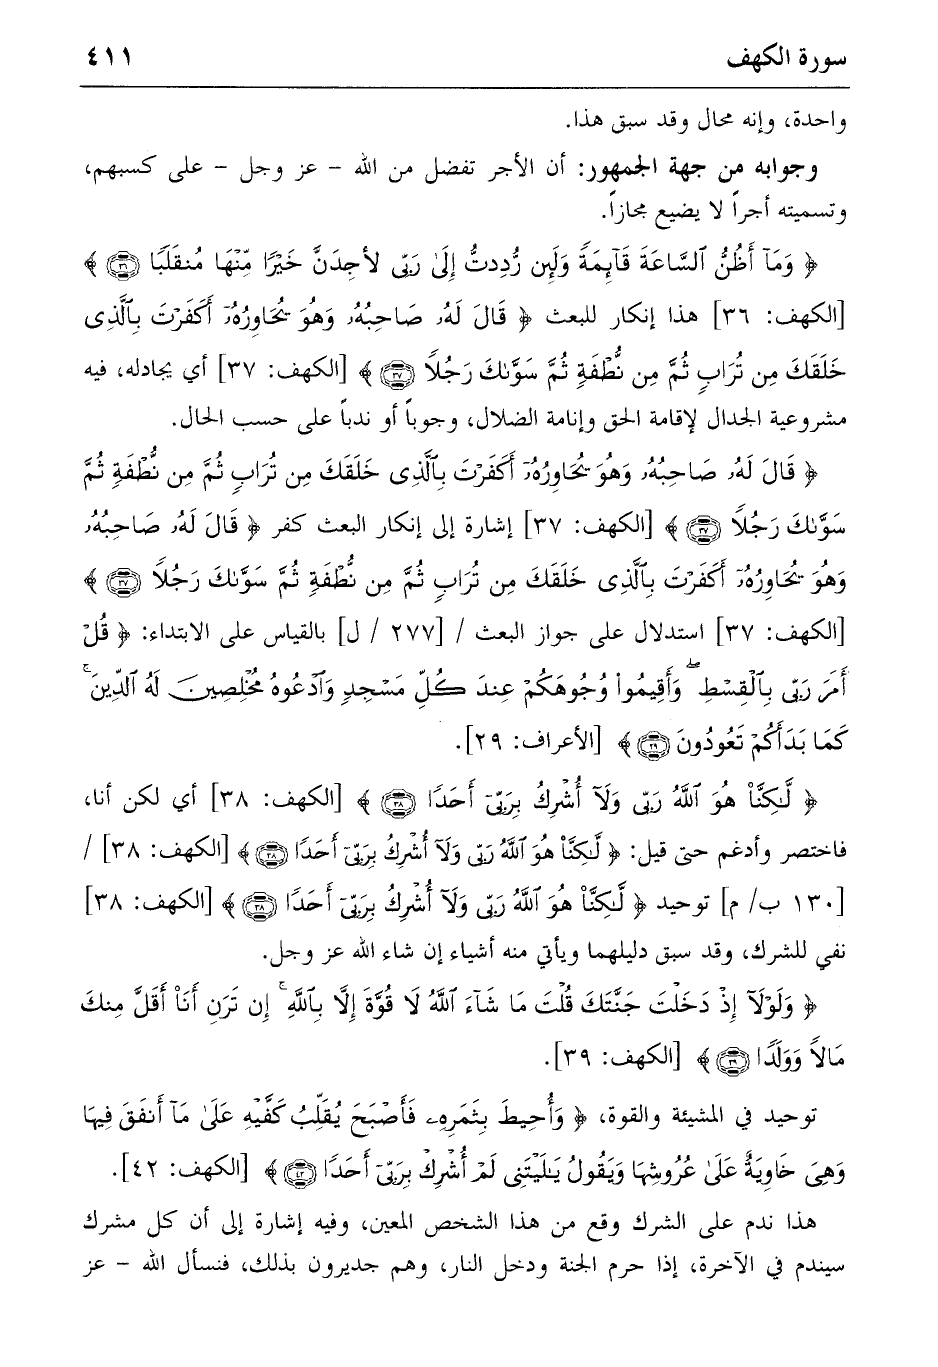 سورة الكهف ٤١١
واحدة، وإنه محال وقد سبق هذا.
وجوابه من جهة الجمهور: أن الأجر تفضل من الله - عز وجل - على كسبهم،
وتسميته أجراً لا يضيع مجازاً.
﴿ وَمَآ أَظُنُّ ٱلسَّاعَةَ قَآئِمَةً وَلَئِن رُّدِدتُّ إِلَىٰ رَبِّى لَأَجِدَنَّ خَيْرًا مِّنْهَا مُنقَلَبًا ۝٣٦ ﴾
[الكهف: ٣٦] هذا إنكار للبعث ﴿ قَالَ لَهُۥ صَاحِبُهُۥ وَهُوَ يُحَاوِرُهُۥٓ أَكَفَرْتَ بِٱلَّذِى
خَلَقَكَ مِن تُرَابٍ ثُمَّ مِن نُّطْفَةٍ ثُمَّ سَوَّىٰكَ رَجُلًا ۝٣٧ ﴾ [الكهف: ٣٧] أي يجادله، فيه
مشروعية الجدال لإقامة الحق وإنامة الضلال، وجوباً أو ندباً على حسب الحال.
﴿ قَالَ لَهُۥ صَاحِبُهُۥ وَهُوَ يُحَاوِرُهُۥٓ أَكَفَرْتَ بِٱلَّذِى خَلَقَكَ مِن تُرَابٍ ثُمَّ مِن نُّطْفَةٍ ثُمَّ
سَوَّىٰكَ رَجُلًا ۝٣٧ ﴾ [الكهف: ٣٧] إشارة إلى إنكار البعث كفر ﴿ قَالَ لَهُۥ صَاحِبُهُۥ
وَهُوَ يُحَاوِرُهُۥٓ أَكَفَرْتَ بِٱلَّذِى خَلَقَكَ مِن تُرَابٍ ثُمَّ مِن نُّطْفَةٍ ثُمَّ سَوَّىٰكَ رَجُلًا ۝٣٧ ﴾
[الكهف: ٣٧] استدلال على جواز البعث / [٢٧٧ / ل] بالقياس على الابتداء: ﴿ قُلْ
أَمَرَ رَبِّى بِٱلْقِسْطِ ۖ وَأَقِيمُوا۟ وُجُوهَكُمْ عِندَ كُلِّ مَسْجِدٍ وَٱدْعُوهُ مُخْلِصِينَ لَهُ ٱلدِّينَ ۚ
كَمَا بَدَأَكُمْ تَعُودُونَ ۝٢٩ ﴾ [الأعراف: ٢٩].
﴿ لَّٰكِنَّا۠ هُوَ ٱللَّهُ رَبِّى وَلَآ أُشْرِكُ بِرَبِّىٓ أَحَدًا ۝٣٨ ﴾ [الكهف: ٣٨] أي لكن أنا،
فاختصر وأدغم حتى قيل: ﴿ لَّٰكِنَّا۠ هُوَ ٱللَّهُ رَبِّى وَلَآ أُشْرِكُ بِرَبِّىٓ أَحَدًا ۝٣٨ ﴾ [الكهف: ٣٨] /
[١٣٠ ب/ م] توحيد ﴿ لَّٰكِنَّا۠ هُوَ ٱللَّهُ رَبِّى وَلَآ أُشْرِكُ بِرَبِّىٓ أَحَدًا ۝٣٨ ﴾ [الكهف: ٣٨]
نفي للشرك، وقد سبق دليلهما ويأتي منه أشياء إن شاء الله عز وجل.
﴿ وَلَوْلَآ إِذْ دَخَلْتَ جَنَّتَكَ قُلْتَ مَا شَآءَ ٱللَّهُ لَا قُوَّةَ إِلَّا بِٱللَّهِ ۚ إِن تَرَنِ أَنَا۠ أَقَلَّ مِنكَ
مَالًا وَوَلَدًا ۝٣٩ ﴾ [الكهف: ٣٩].
توحيد في المشيئة والقوة، ﴿ وَأُحِيطَ بِثَمَرِهِۦ فَأَصْبَحَ يُقَلِّبُ كَفَّيْهِ عَلَىٰ مَآ أَنفَقَ فِيهَا
وَهِىَ خَاوِيَةٌ عَلَىٰ عُرُوشِهَا وَيَقُولُ يَٰلَيْتَنِى لَمْ أُشْرِكْ بِرَبِّىٓ أَحَدًا ۝٤٢ ﴾ [الكهف: ٤٢].
هذا ندم على الشرك وقع من هذا الشخص المعين، وفيه إشارة إلى أن كل مشرك
سيندم في الآخرة، إذا حرم الجنة ودخل النار، وهم جديرون بذلك، فنسأل الله - عز